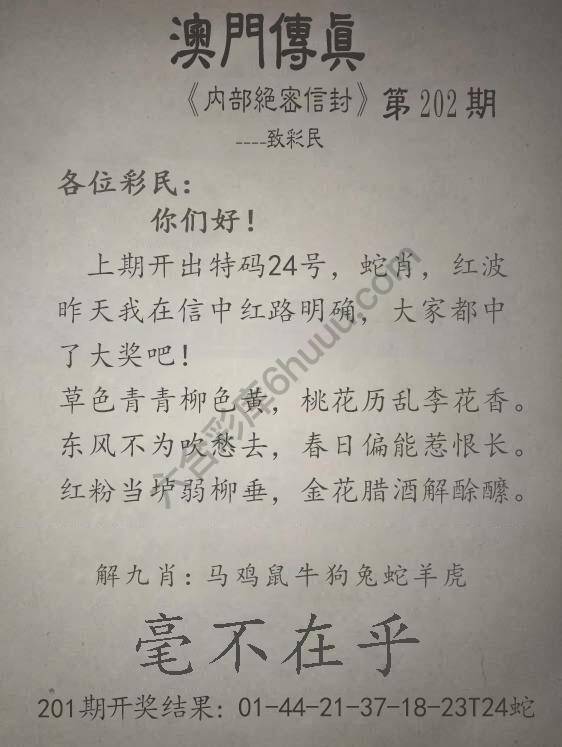 澳門傳眞
《内部絕密信封》第202期
----致彩民
各位彩民：
你们好！
上期开出特码24号，蛇肖，红波
昨天我在信中红路明确，大家都中
了大奖吧！
草色青青柳色黄，桃花历乱李花香。
东风不为吹愁去，春日偏能惹恨长。
红粉当垆弱柳垂，金花腊酒解酴醾。
解九肖：马鸡鼠牛狗兔蛇羊虎
毫不在乎
201期开奖结果：01-44-21-37-18-23T24蛇
六合彩库6huuu.com